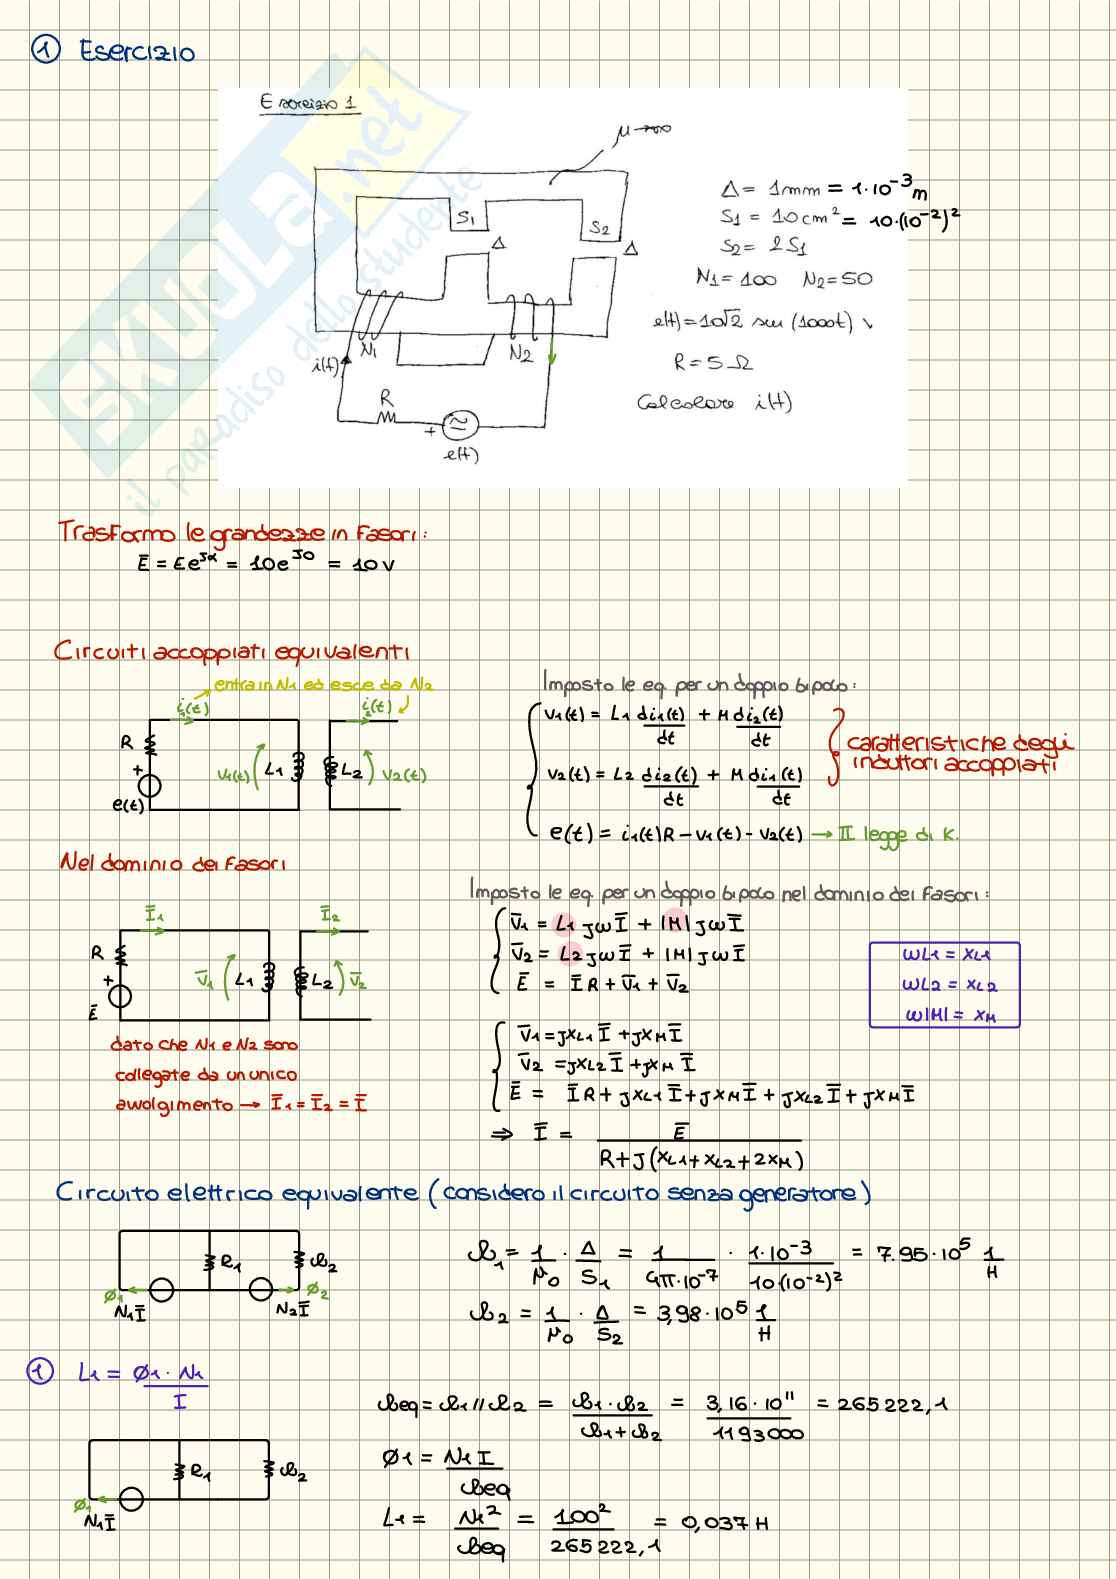 ① Esercizio
Esercizio 1
μ→∞
S₁
Δ
S₂
Δ
N₁
N₂
i(t)
R
+
e(t)
Δ = 1mm = 1·10⁻³ m
S₁ = 10cm² = 10·(10⁻²)²
S₂ = 2S₁
N₁=100 N₂=50
e(t)=10√2 sen(1000t) V
R = 5 Ω
Calcolare i(t)
SKUOLA.net
il paradiso dello studente
Trasformo le grandezze in fasori:
Ē = Ee^Jα = 10e^J0 = 10V
Circuiti accoppiati equivalenti
entra in N1 ed esce da N2
i₁(t)
i₂(t)
R
+
e(t)
v1(t)
L1
L2
v2(t)
Imposto le eq. per un doppio bipolo:
v1(t) = L1 di1(t)/dt + M di2(t)/dt
v2(t) = L2 di2(t)/dt + M di1(t)/dt
e(t) = i1(t)R - v1(t) - v2(t) → II legge di K.
caratteristiche degli
induttori accoppiati
Nel dominio dei fasori
Ī1
Ī2
R
+
Ē
V̄1
L1
L2
V̄2
dato che N1 e N2 sono
collegate da un unico
avvolgimento → Ī1 = Ī2 = Ī
Imposto le eq. per un doppio bipolo nel dominio dei fasori:
V̄1 = L1 JωĪ + |M| JωĪ
V̄2 = L2 JωĪ + |M| JωĪ
Ē = ĪR + V̄1 + V̄2
ωL1 = XL1
ωL2 = XL2
ω|M| = XM
V̄1 = JXL1 Ī + JXM Ī
V̄2 = JXL2 Ī + JXM Ī
Ē = ĪR + JXL1 Ī + JXM Ī + JXL2 Ī + JXM Ī
⇒ Ī = Ē / R+J(XL1+XL2+2XM)
Circuito elettrico equivalente (considero il circuito senza generatore)
R1
R2
ø1
N1Ī
N2Ī
ø2
R1 = 1/μ0 · Δ/S1 = 1/4π·10⁻⁷ · 1·10⁻³/10(10⁻²)² = 7.95·10⁵ 1/H
R2 = 1/μ0 · Δ/S2 = 3,98·10⁵ 1/H
① L1 = ø1·N1/I
R1
R2
ø1
N1Ī
Req = R1 // R2 = R1·R2/R1+R2 = 3,16·10¹¹/1193000 = 265222,1
ø1 = N1 I/Req
L1 = N1²/Req = 100²/265222,1 = 0,037 H